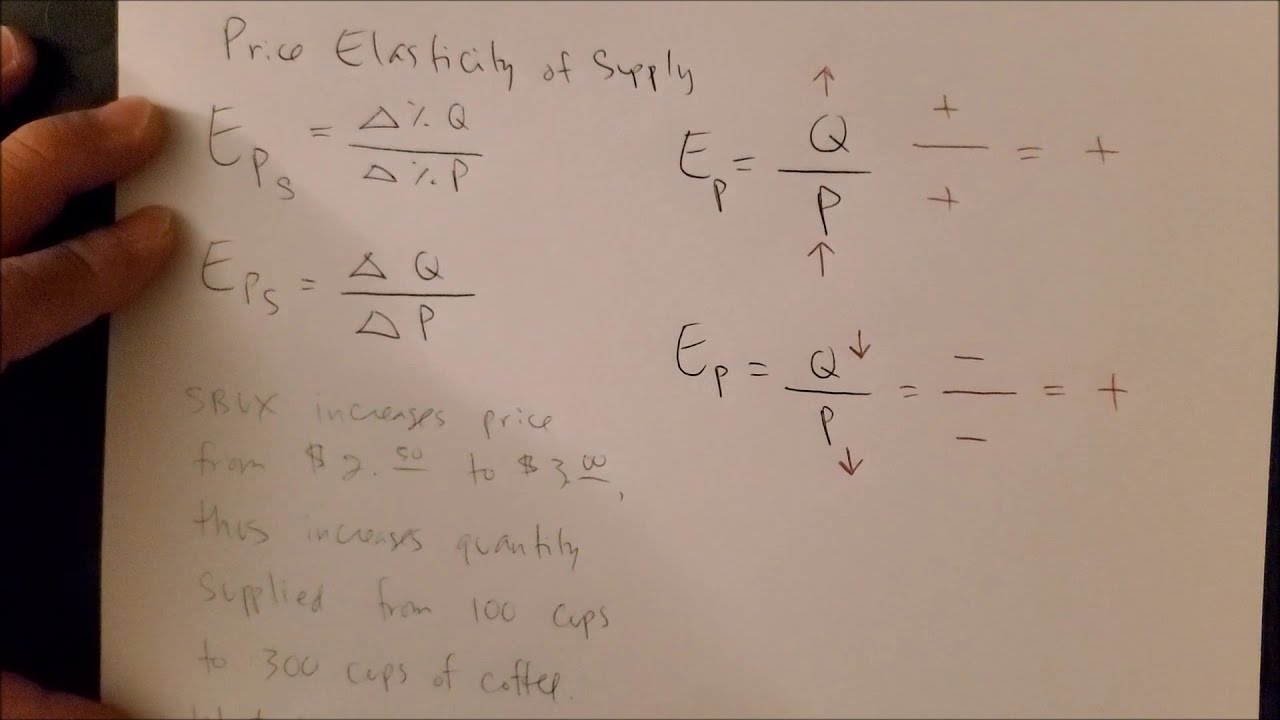 Price Elasticity of Supply
E_Ps = Δ% Q / Δ% P
E_Ps = Δ Q / Δ P
SBUX increases price
from $2.50 to $3.00,
thus increases quantity
supplied from 100 cups
to 300 cups of coffee.
↑
E_P = Q / P + / + = +
↑
E_P = Q ↓ / P ↓ = - / - = +